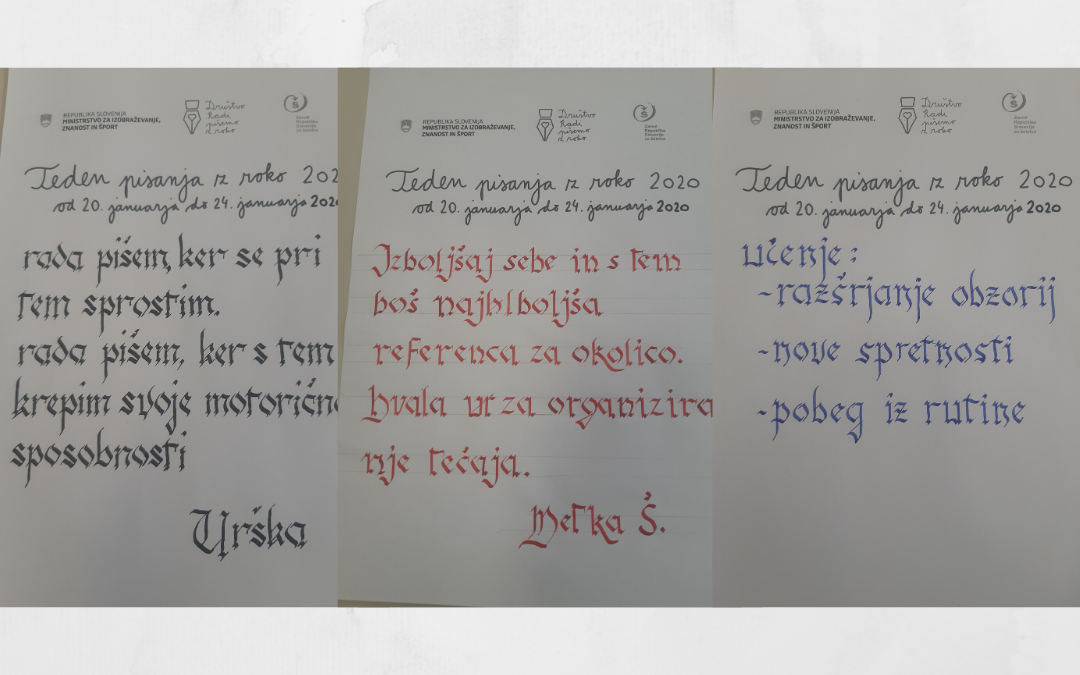 REPUBLIKA SLOVENIJA
MINISTRSTVO ZA IZOBRAŽEVANJE,
ZNANOST IN ŠPORT
Društvo
Radi
pišemo
z roko
Teden pisanja iz roko 202
od 20. januarja do 24. januarja 202
rada pišem, ker se pri
tem sprostim.
rada pišem, ker s tem
krepim svoje motorične
sposobnosti
Urška
REPUBLIKA SLOVENIJA
MINISTRSTVO ZA IZOBRAŽEVANJE,
ZNANOST IN ŠPORT
Društvo
Radi
pišemo
z roko
Zavod
Republike
Slovenije
za šolstvo
Teden pisanja iz roko 2020
od 20. januarja do 24. januarja 2020
Izboljšaj sebe in s tem
boš najboljša
referenca za okolico.
Hvala za organizira
nje tečaja.
Metka Š.
REPUBLIKA SLOVENIJA
MINISTRSTVO ZA IZOBRAŽEVANJE,
ZNANOST IN ŠPORT
Društvo
Radi
pišemo
z roko
Teden pisanja iz roko 2020
od 20. januarja do 24. januarja 2020
učenje:
-razšrjanje obzorij
-nove spretnosti
-pobeg iz rutine